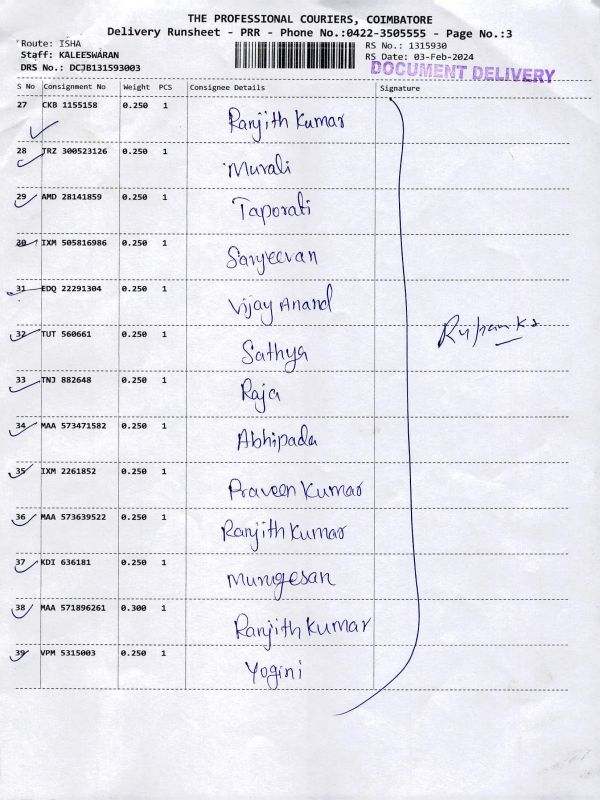 THE PROFESSIONAL COURIERS, COIMBATORE
Delivery Runsheet - PRR - Phone No.:0422-3505555 - Page No.:3
Route: ISHA
RS No.: 1315930
Staff: KALEESWARAN
RS Date: 03-Feb-2024
DRS No.: DCJB131593003
DOCUMENT DELIVERY
S No Consignment No Weight PCS Consignee Details Signature
27 CKB 1155158 0.250 1 Ranjith Kumar
28 TRZ 300523126 0.250 1 Murali
29 AMD 28141859 0.250 1 Taporati
30 IXM 505816986 0.250 1 Sanjeevan
31 EDQ 22291304 0.250 1 Vijay Anand
32 TUT 560661 0.250 1 Sathya
33 TNJ 882648 0.250 1 Raja
34 MAA 573471582 0.250 1 Abhipada
35 IXM 2261852 0.250 1 Praveen Kumar
36 MAA 573639522 0.250 1 Ranjith Kumar
37 KDI 636181 0.250 1 Murugesan
38 MAA 571896261 0.300 1 Ranjith Kumar
39 VPM 5315003 0.250 1 Yogini